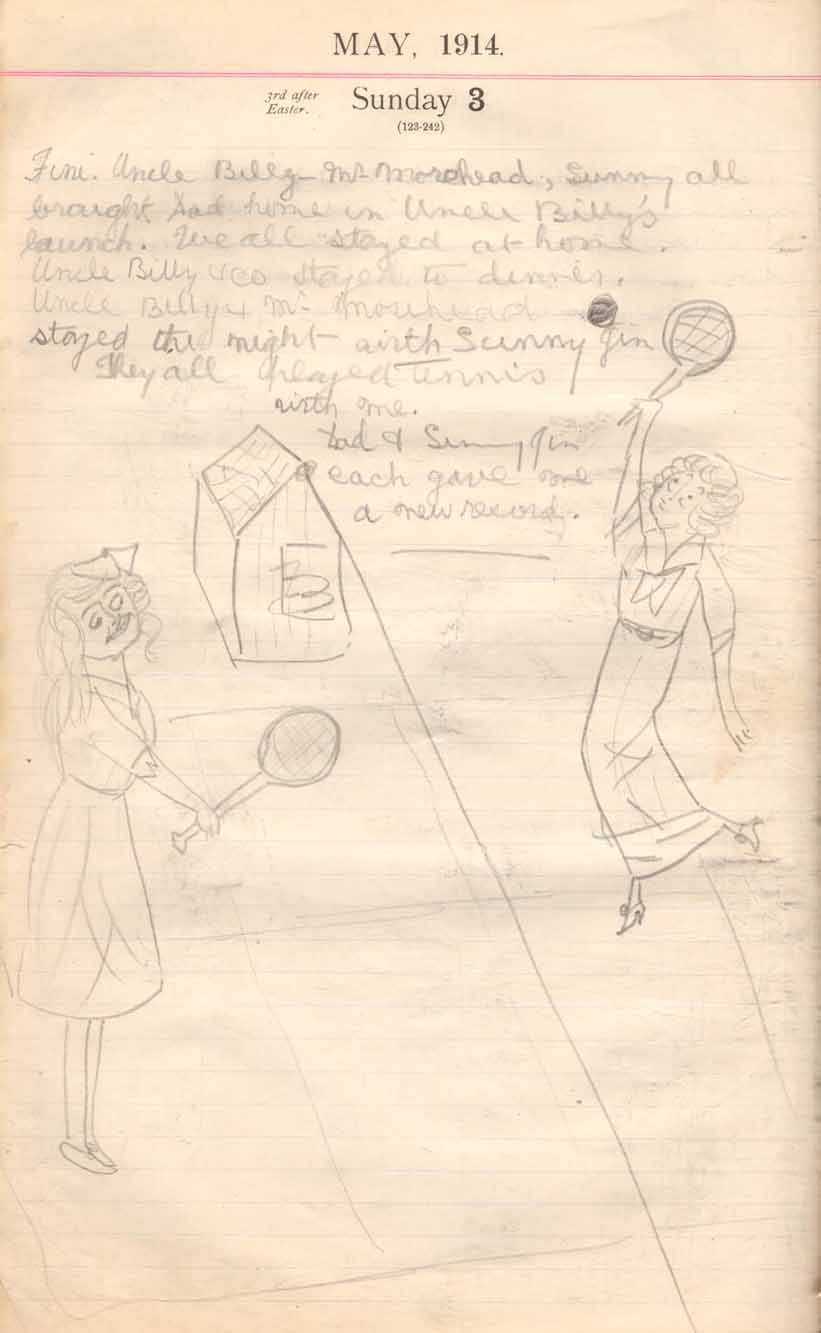 MAY, 1914.
3rd after
Easter.
Sunday 3
(123-242)
Fini. Uncle Billy Mr Morehead, Sunny all
brought Dad home in Uncle Billy's
launch. We all stayed at home.
Uncle Billy & co stayed to dinner.
Uncle Billy & Mr Morehead
stayed the night with Sunny Jim
They all played Tennis
with me.
Dad & Sunny Jim
each gave me
a new record.